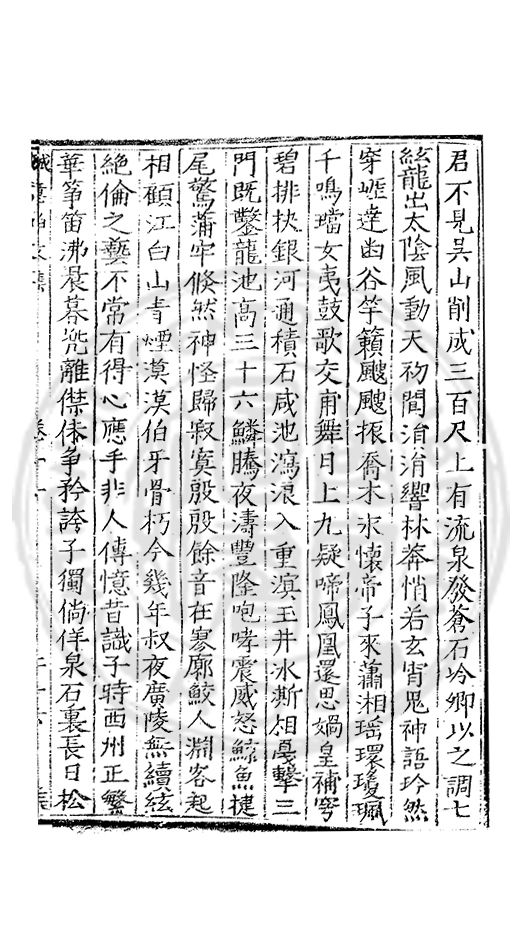 君不見吳山削成三百尺上有流泉發蒼石冷卿以之調七
絃龍出太陰風動天初聞涓涓響林莽悄若玄宵鬼神語玲然
穿崕達幽谷竽籟颼颼振喬木永懷帝子來瀟湘瑶環瓊珮
千鳴璫女夷鼓歌交甫舞日上九疑啼鳳凰還思媧皇補穹
碧排抉銀河通積石咸池瀉浪入重溟玉井水斯相戞擊三
門既鑿龍池高三十六鱗騰夜濤豐隆咆哮震威怒鯨魚揵
尾驚蒲牢倏然神怪歸寂寞殷殷餘音在寥廓鮫人淵客起
相顧江白山青煙漠漠伯牙骨朽今幾年叔夜廣陵無續絃
絶倫之藝不常有得心應手非人傳憶昔識子時西州正繁
華筝笛沸晨暮兠離僸佅争矜誇子獨倘佯泉石裏長日松